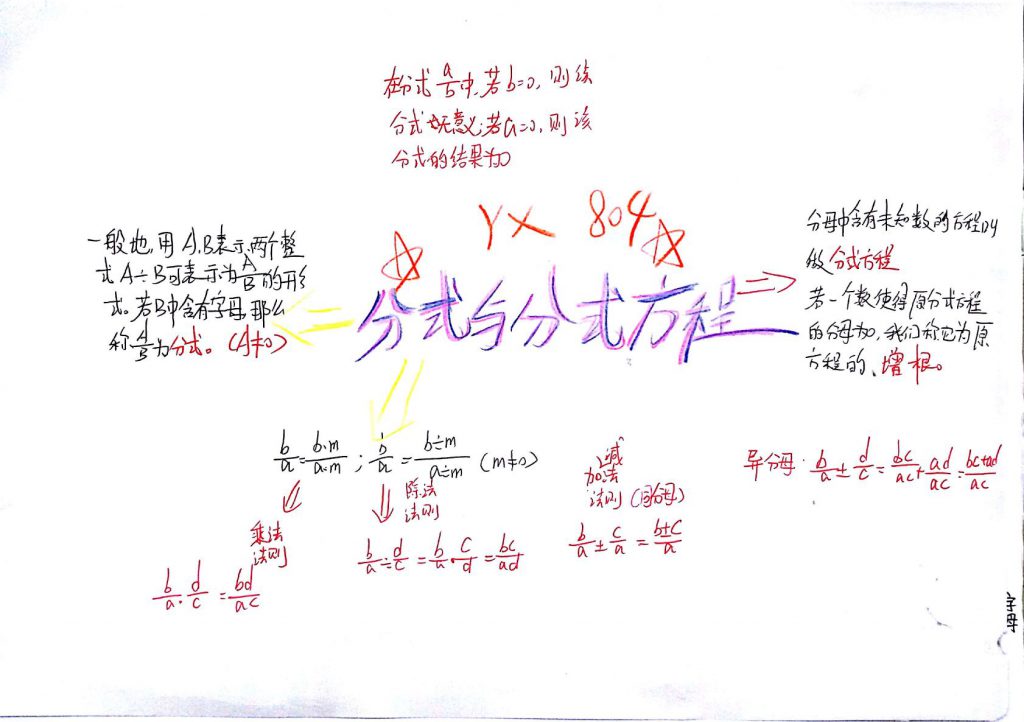 在分式 a/b 中,若 b=0,则该
分式无意义;若 a=0,则该
分式的结果为0
YX 804
分式与分式方程
一般地,用 A,B表示两个整
式 A÷B可表示为 A/B 的形
式。若B中含有字母,那么
称 A/B 为分式。(A≠0)
分母中含有未知数的方程叫
做分式方程
若一个数使得原分式方程
的分母为0,我们称它为原
方程的、增根。
b/a = b·m/a·m ; b/a = b÷m/a÷m (m≠0)
乘法
法则
b/a · d/c = bd/ac
除法
法则
b/a ÷ d/c = b/a · c/d = bc/ad
减
加法
法则 (同分母)
b/a ± c/a = b±c/a
异分母: b/a ± d/c = bc/ac + ad/ac = bc±ad/ac
字母